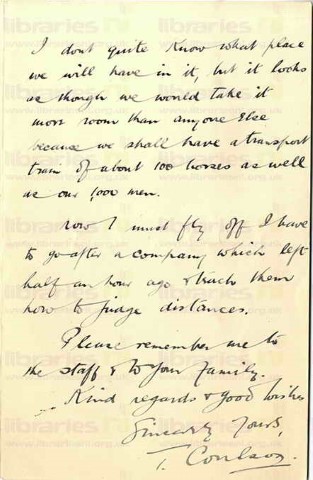 I dont quite know what place
we will have in it, but it looks
as though we would take it
more room than anyone else
because we shall have a transport
train of about 100 horses as well
as our 1,000 men.
Now I must fly off I have
to go after a company which left
half an hour ago & teach them
how to judge distances.
Please remember me to
the staff & to your family.
Kind regards & good wishes
Sincerely yours,
T. Coulson